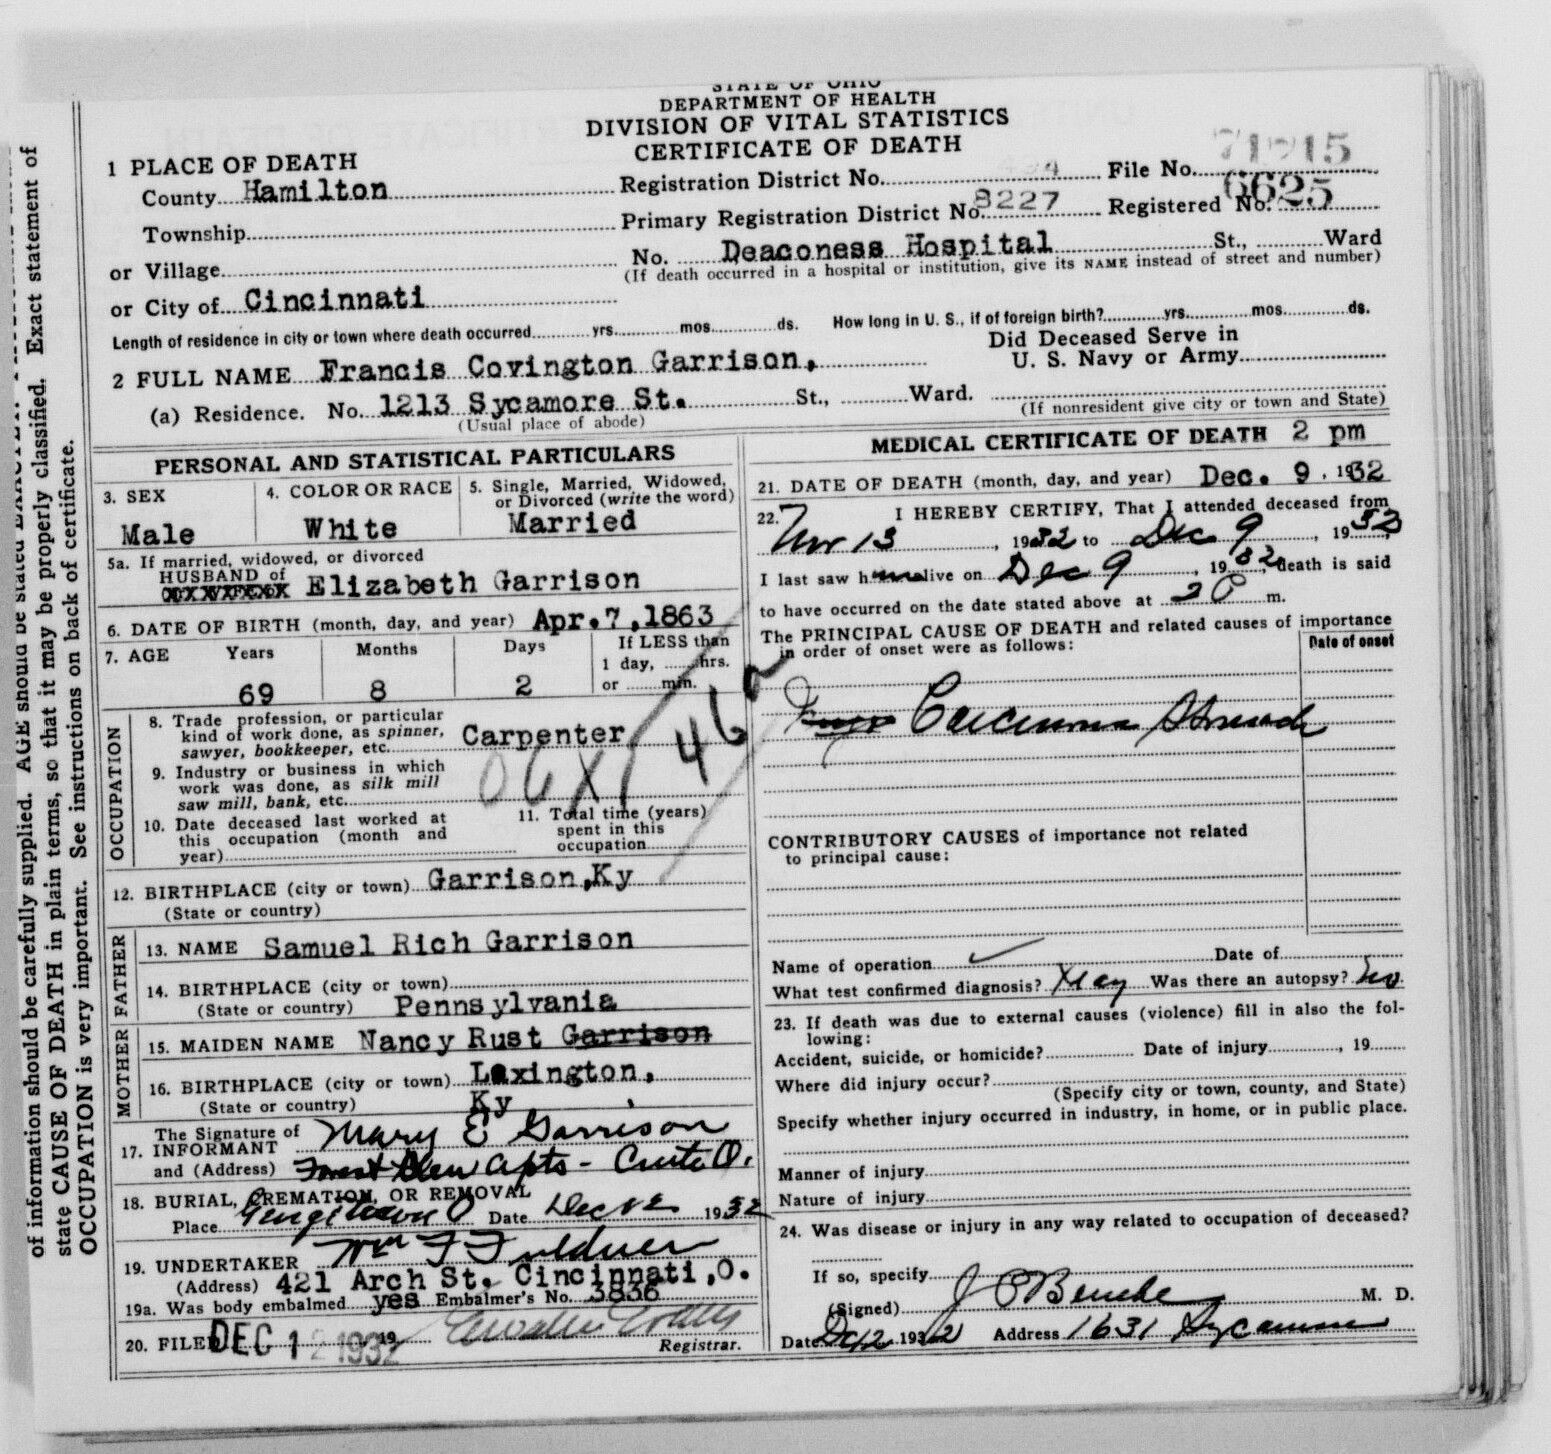 STATE OF OHIO
DEPARTMENT OF HEALTH
DIVISION OF VITAL STATISTICS
CERTIFICATE OF DEATH
1 PLACE OF DEATH
County Hamilton Registration District No. 494 File No. 71215
Township Primary Registration District No. 8227 Registered No. 6625
or Village No. Deaconess Hospital St., Ward
(If death occurred in a hospital or institution, give its NAME instead of street and number)
or City of Cincinnati
Length of residence in city or town where death occurred yrs. mos. ds. How long in U. S., if of foreign birth? yrs. mos. ds.
2 FULL NAME Francis Covington Garrison, Did Deceased Serve in U. S. Navy or Army
(a) Residence. No. 1213 Sycamore St. St., Ward.
(Usual place of abode) (If nonresident give city or town and State)
PERSONAL AND STATISTICAL PARTICULARS
3. SEX
Male
4. COLOR OR RACE
White
5. Single, Married, Widowed, or Divorced (write the word)
Married
5a. If married, widowed, or divorced
HUSBAND of Elizabeth Garrison
6. DATE OF BIRTH (month, day, and year) Apr. 7, 1863
7. AGE Years Months Days If LESS than
1 day, hrs.
69 8 2 or min.
OCCUPATION
8. Trade profession, or particular
kind of work done, as spinner,
sawyer, bookkeeper, etc. Carpenter
9. Industry or business in which
work was done, as silk mill
saw mill, bank, etc.
10. Date deceased last worked at
this occupation (month and
year)
11. Total time (years)
spent in this
occupation
46b
12. BIRTHPLACE (city or town) Garrison, Ky
(State or country)
FATHER
13. NAME Samuel Rich Garrison
14. BIRTHPLACE (city or town)
(State or country) Pennsylvania
MOTHER
15. MAIDEN NAME Nancy Rust Garrison
16. BIRTHPLACE (city or town) Lexington,
(State or country) Ky
17. The Signature of
INFORMANT Mary E Garrison
and (Address) Forest Glen Apts - O.
18. BURIAL, CREMATION, OR REMOVAL
Place Georgetown O Date Dec 12 1932
19. UNDERTAKER Wm F Fuldner
(Address) 421 Arch St. Cincinnati, O.
19a. Was body embalmed yes Embalmer's No. 3836
20. FILED DEC 12 1932 19
Registrar.
MEDICAL CERTIFICATE OF DEATH 2 pm
21. DATE OF DEATH (month, day, and year) Dec. 9, 1932
22. I HEREBY CERTIFY, That I attended deceased from
Nov 13, 1932 to Dec 9, 1932
I last saw him alive on Dec 9, 1932, death is said
to have occurred on the date stated above at 2 P m.
The PRINCIPAL CAUSE OF DEATH and related causes of importance
in order of onset were as follows: Date of onset
Carcinoma Stomach
CONTRIBUTORY CAUSES of importance not related
to principal cause:
Name of operation Date of
What test confirmed diagnosis? Xray Was there an autopsy? no
23. If death was due to external causes (violence) fill in also the following:
Accident, suicide, or homicide? Date of injury, 19
Where did injury occur?
(Specify city or town, county, and State)
Specify whether injury occurred in industry, in home, or in public place.
Manner of injury
Nature of injury
24. Was disease or injury in any way related to occupation of deceased?
If so, specify
(Signed) M. D.
Date Dec 12 1932 Address 1631 Sycamore
of information should be carefully supplied. AGE should be stated EXACTLY. Exact statement of
state CAUSE OF DEATH in plain terms, so that it may be properly classified.
OCCUPATION is very important. See instructions on back of certificate.